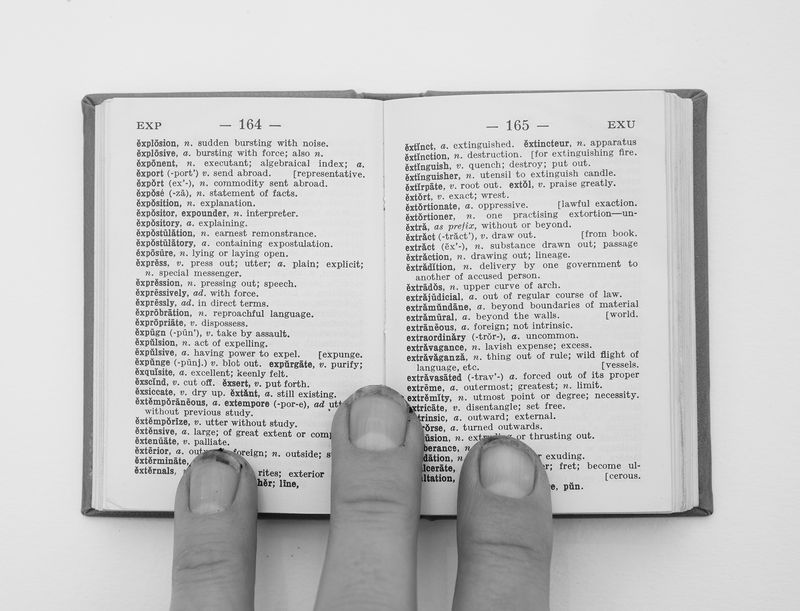 EXP — 164 —
ĕxplōsion, n. sudden bursting with noise.
ĕxplōsive, a. bursting with force; also n.
ĕxpōnent, n. executant; algebraical index; a.
ĕxport (-port′) v. send abroad. [representative.
ĕxpōrt (ex′-), n. commodity sent abroad.
ĕxpōsé (-zā), n. statement of facts.
ĕxposĭtion, n. explanation.
ĕxpŏsitor, expounder, n. interpreter.
ĕxpŏsitory, a. explaining.
ĕxpŏstūlātion, n. earnest remonstrance.
ĕxpŏstūlātory, a. containing expostulation.
ĕxpōsūre, n. lying or laying open.
ĕxprĕss, v. press out; utter; a. plain; explicit;
n. special messenger.
ĕxprĕssion, n. pressing out; speech.
ĕxprĕssively, ad. with force.
ĕxprĕssly, ad. in direct terms.
ĕxprōbrātion, n. reproachful language.
ĕxprōpriāte, v. dispossess.
ĕxpūgn (-pūn′), v. take by assault.
ĕxpŭlsion, n. act of expelling.
ĕxpŭlsive, a. having power to expel. [expunge.
ĕxpŭnge (-pŭnj.) v. blot out. ĕxpŭrgāte, v. purify;
ĕxquĭsĭte, a. excellent; keenly felt.
ĕxscĭnd, v. cut off. ĕxsert, v. put forth.
ĕxsiccate, v. dry up. ĕxtănt, a. still existing.
ĕxtĕmpŏrāneous, a. extempore (-por-e), ad
without previous study.
ĕxtĕmpŏrīze, v. utter without study.
ĕxtĕnsive, a. large; of great extent or
ĕxtĕnūāte, v. palliate.
ĕxtĕrior, a. foreign; n. outside;
ĕxtĕrmināte,
ĕxtĕrnals, rites; exterior
līne,
— 165 — EXU
ĕxtĭnct, a. extinguished. ĕxtincteur, n. apparatus
ĕxtĭnction, n. destruction. [for extinguishing fire.
ĕxtĭnguish, v. quench; destroy; put out.
ĕxtĭnguisher, n. utensil to extinguish candle.
ĕxtĭrpāte, v. root out. extŏl, v. praise greatly.
ĕxtŏrt, v. exact; wrest.
ĕxtŏrtionate, a. oppressive. [lawful exaction.
ĕxtŏrtioner, n. one practising extortion—un-
ĕxtră, as prefix, without or beyond.
ĕxtrăct (-trăct′), v. draw out. [from book.
ĕxtrăct (ĕx′-), n. substance drawn out; passage
ĕxtrăction, n. drawing out; lineage.
ĕxtrădĭtion, n. delivery by one government to
another of accused person.
ĕxtrādŏs, n. upper curve of arch.
ĕxtrājūdicial, a. out of regular course of law.
ĕxtrămŭndāne, a. beyond boundaries of material
ĕxtrămūral, a. beyond the walls. [world.
ĕxtrānĕous, a. foreign; not intrinsic.
ĕxtraordinăry (-trŏr-), a. uncommon.
ĕxtrăvagance, n. lavish expense; excess.
ĕxtrăvăganză, n. thing out of rule; wild flight of
language, etc. [vessels.
ĕxtrăvasāted (-trav′-) a. forced out of its proper
ĕxtrēme, a. outermost; greatest; n. limit.
ĕxtrĕmĭty, n. utmost point or degree; necessity.
v. disentangle; set free.
a. outward; external.
a. turned outwards.
n. or thrusting out.
n.
exuding.
fret; become ul-
[cerous.
pŭn.